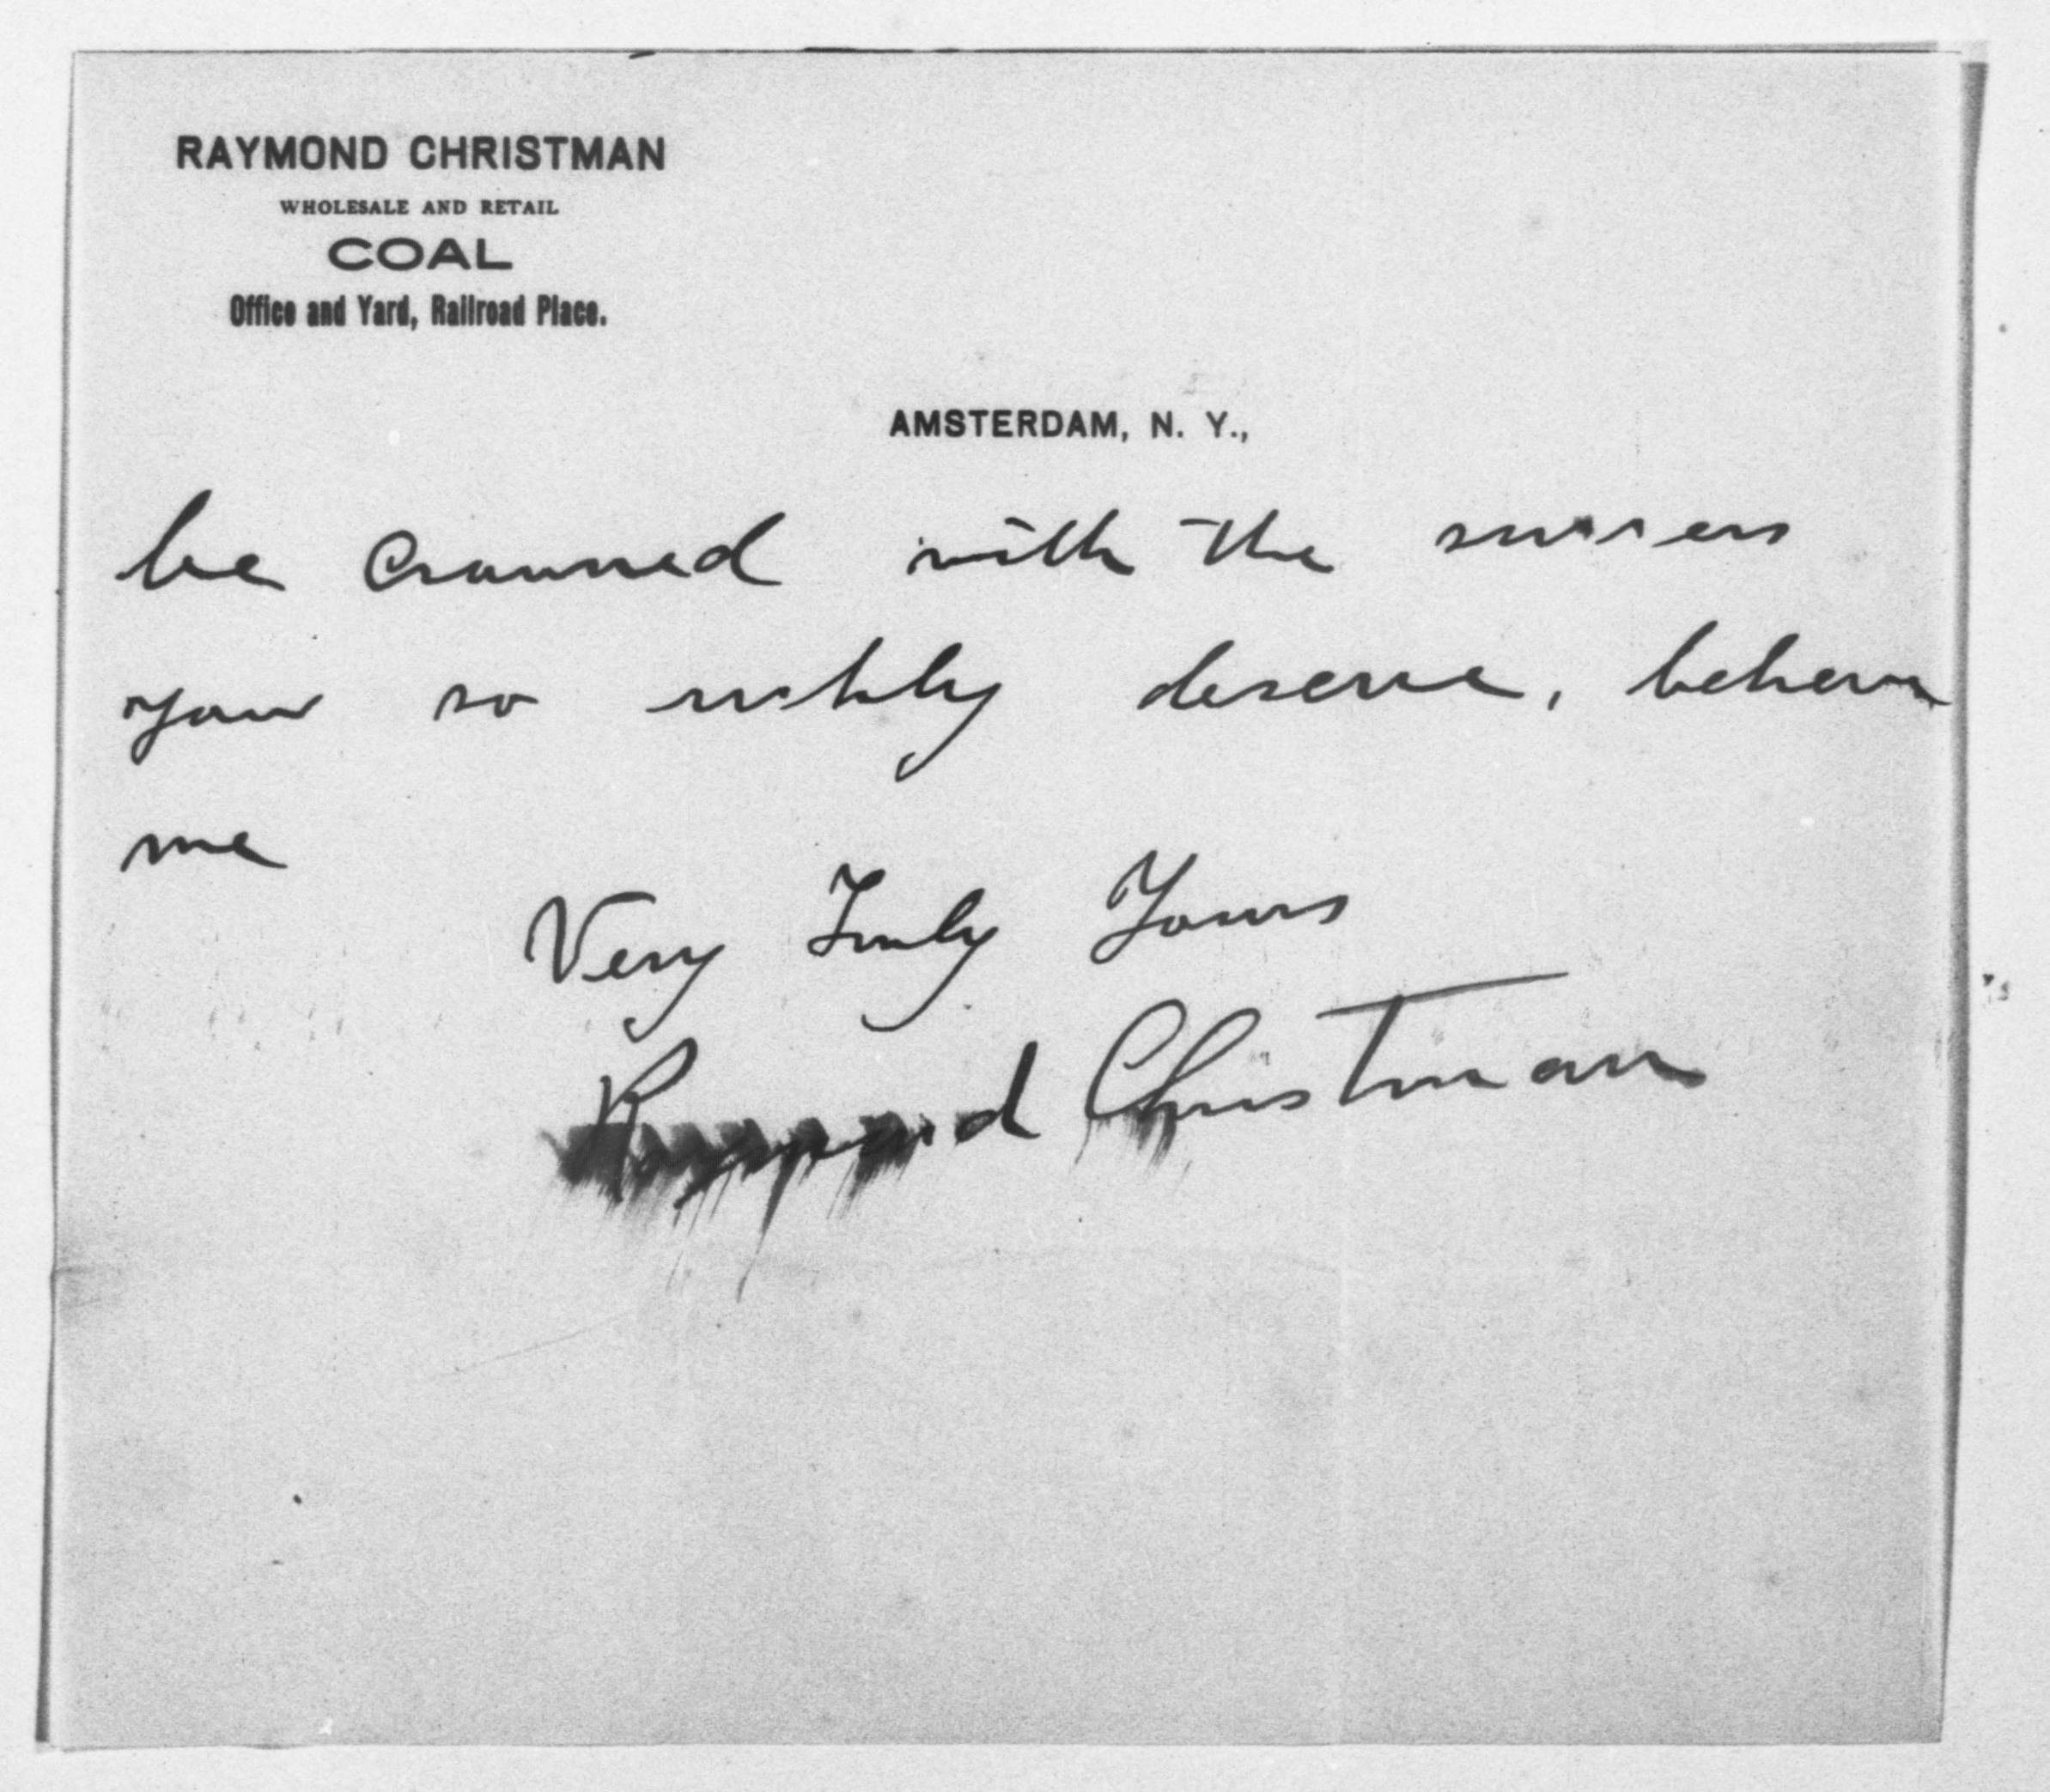 RAYMOND CHRISTMAN
WHOLESALE AND RETAIL
COAL
Office and Yard, Railroad Place.
AMSTERDAM, N. Y.,
be crowned with the success
you so richly deserve, believe
me
Very Truly Yours
Raymond Christman